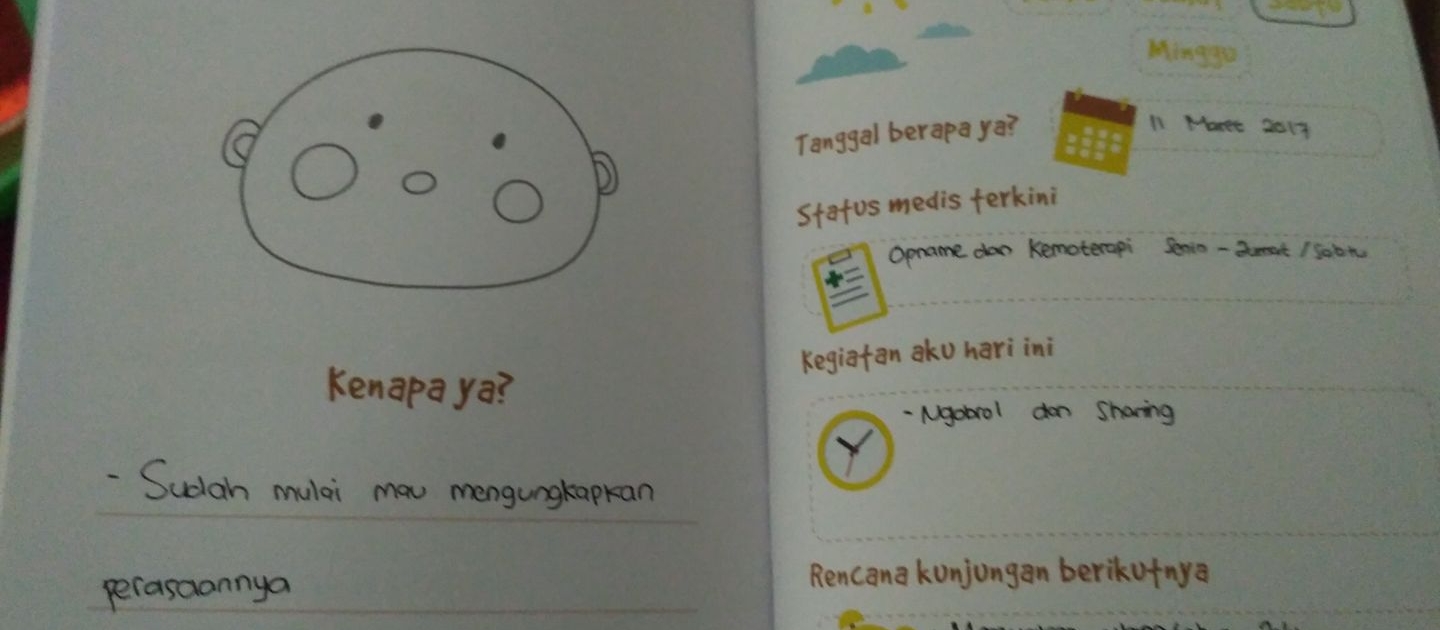 Kenapa ya?
- Sudah mulai mau mengungkapkan
perasaannya
Sabtu
Minggu
Tanggal berapa ya?
11 Maret 2017
Status medis terkini
Opname dan Kemoterapi Senin - Jumat / Sabtu
Kegiatan aku hari ini
- Ngobrol dan Sharing
Rencana kunjungan berikutnya